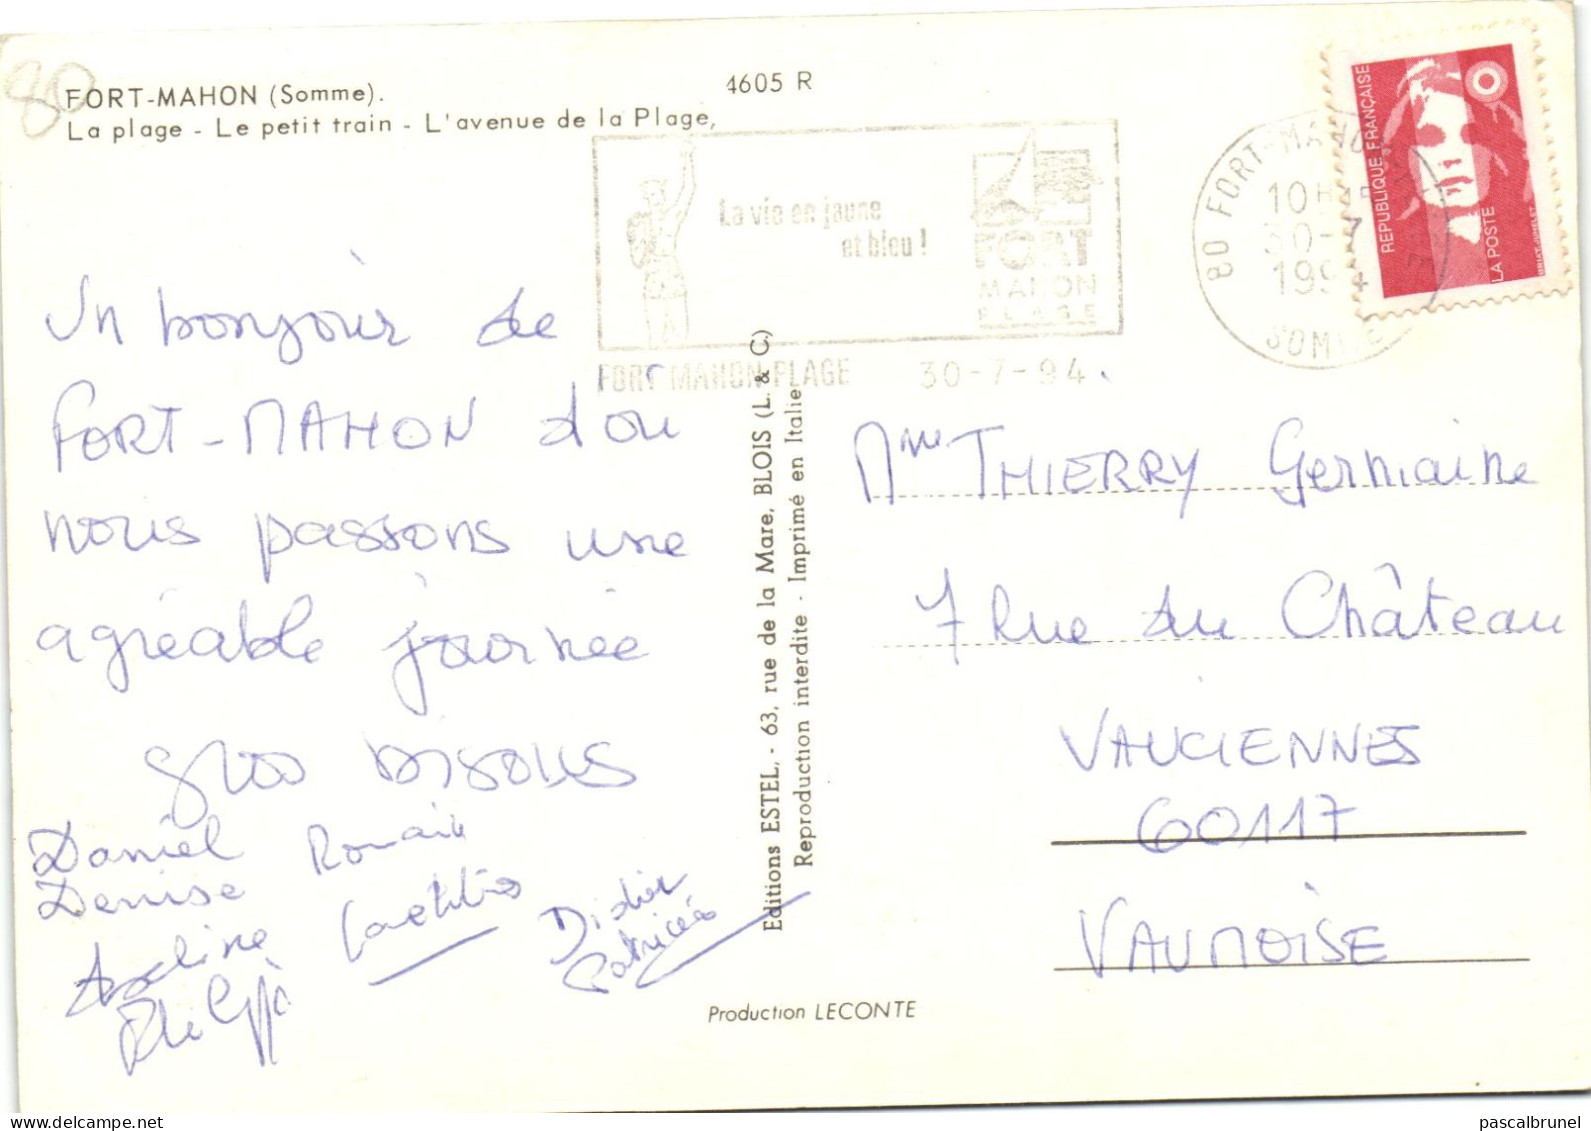 80
FORT-MAHON (Somme).
La plage - Le petit train - L'avenue de la Plage,
4605 R
La vie en jaune
et bleu !
FORT
MAHON
PLAGE
FORT MAHON-PLAGE 30-7-94
80 FORT-MAHON
10H
30-7
1994
SOMME
REPUBLIQUE FRANÇAISE
LA POSTE
Un bonjour de
FORT-MAHON d ou
nous passons une
agréable journée
gros bisous
Daniel Romain
Denise
Laetitia
Didier
Patricia
Philippe
Editions ESTEL, - 63, rue de la Mare, BLOIS (L. & C.)
Reproduction interdite - Imprimé en Italie
Mme THIERRY Germaine
7 Rue du Château
VAUCIENNES
60117
VAUMOISE
Production LECONTE
pascalbrunel